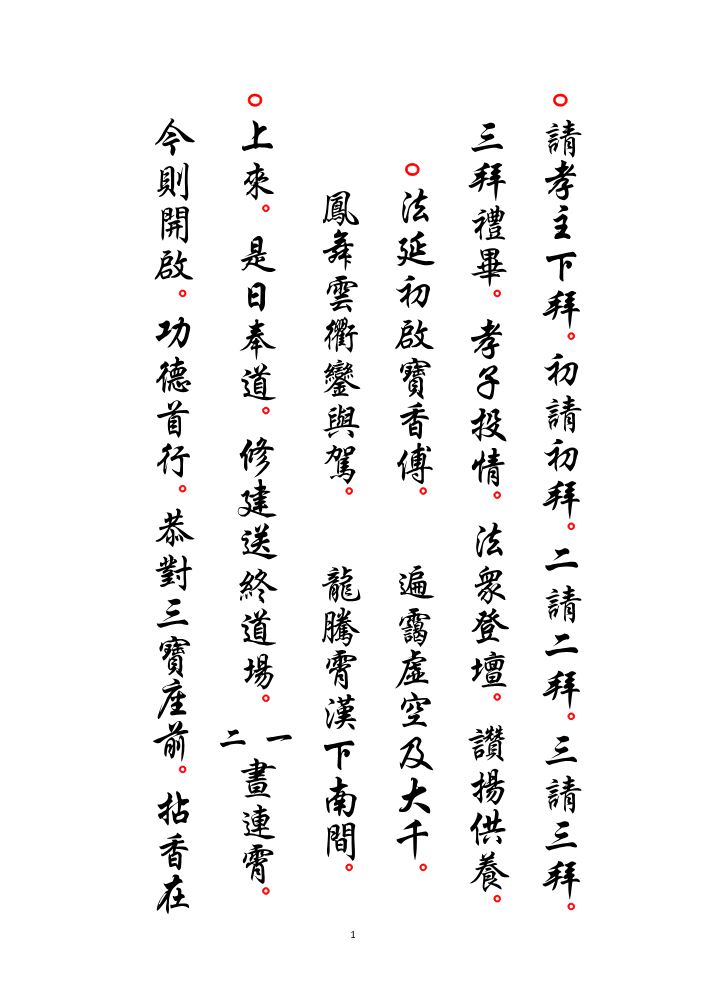 ○請孝主下拜。初請初拜。二請二拜。三請三拜。
三拜禮畢。孝子投情。法衆登壇。讚揚供養。
○法延初啟寶香傅。遍靄虛空及大千。
鳳舞雲衢鑾與駕。龍騰霄漢下南間。
○上來。是日奉道。修建送終道場。一二晝連霄。
今則開啟。功德首行。恭對三寶座前。拈香在
1